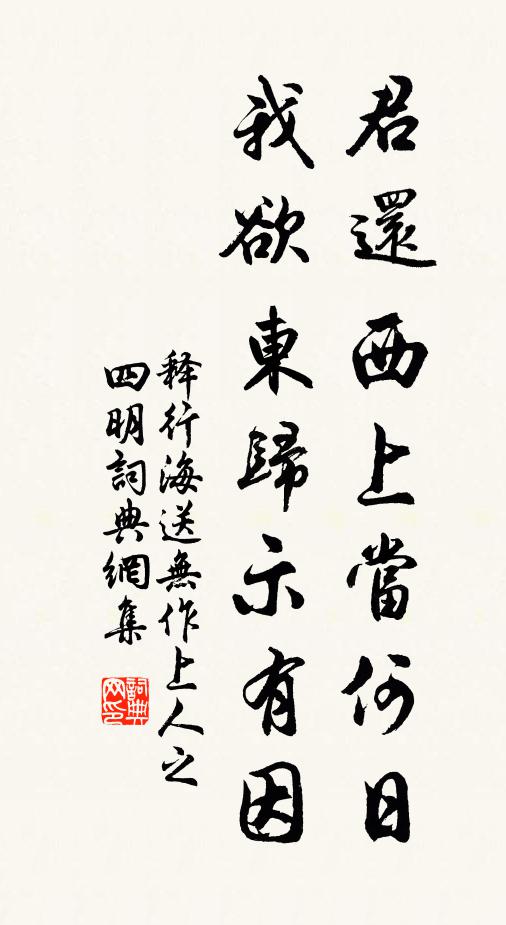 君還西上當何日
我欲東歸示有因
釋行海送無作上人之
四明詞典網集
詞典
网印